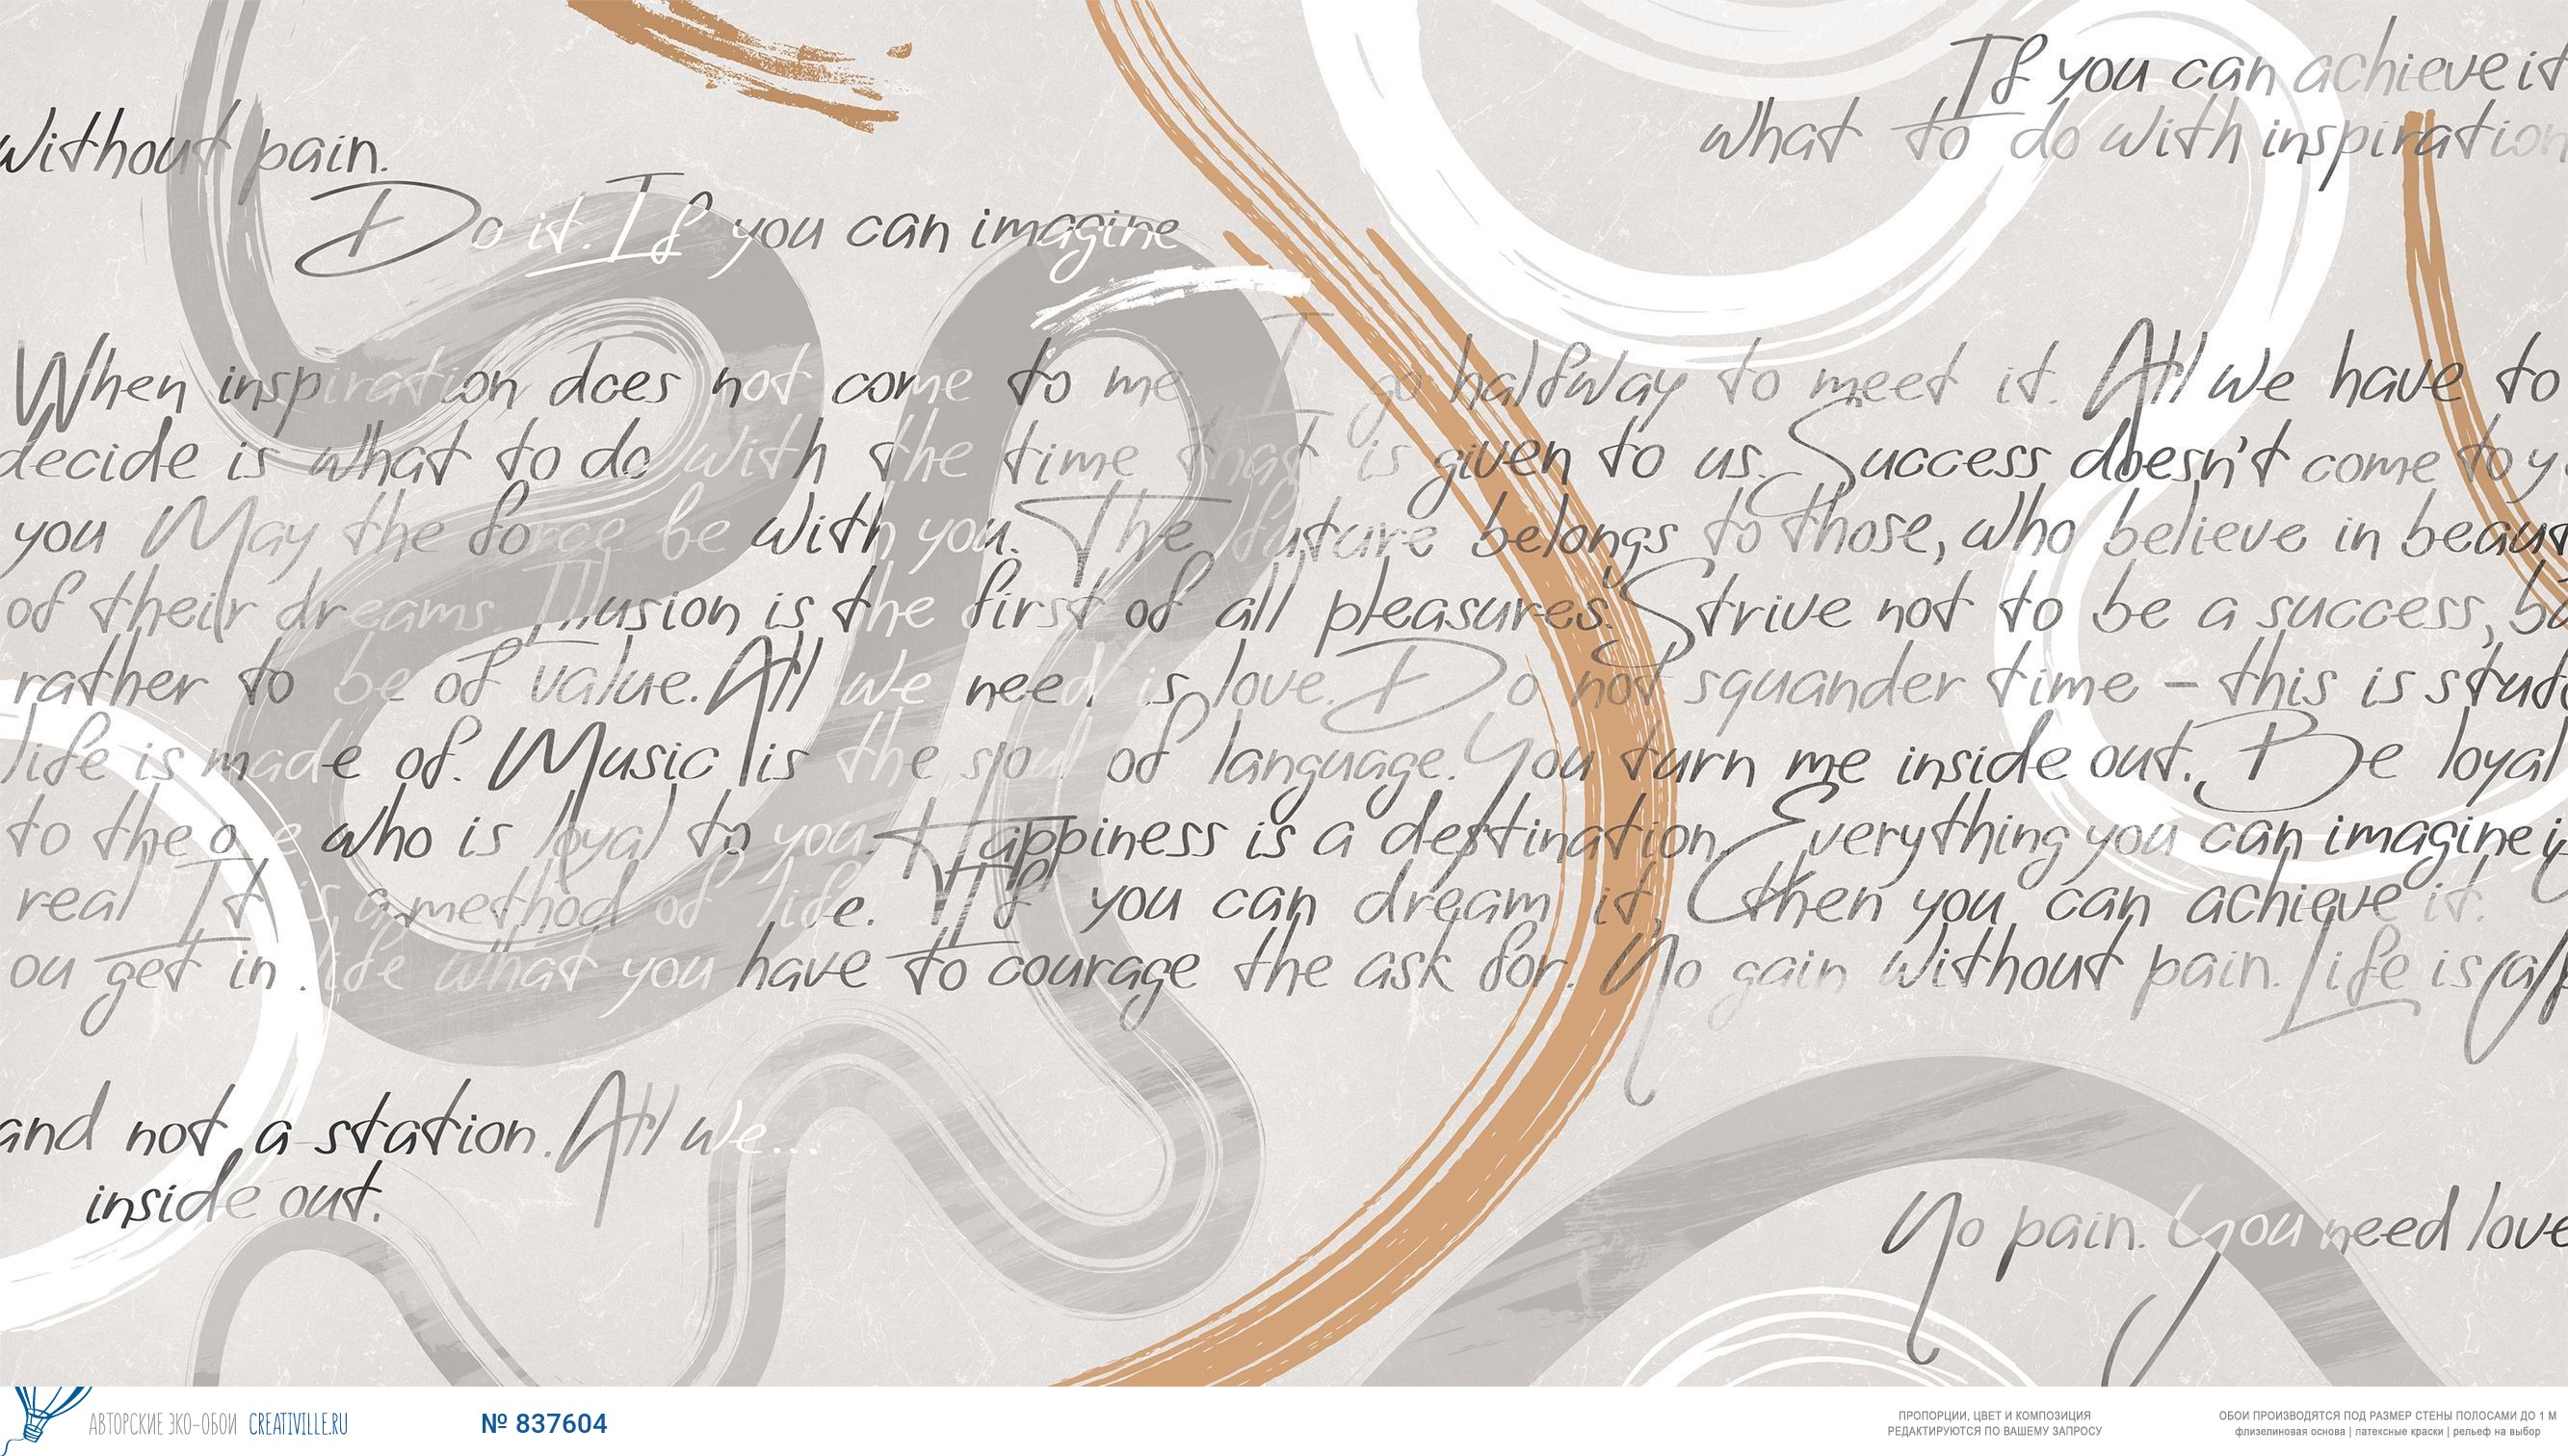 If you can achieve it
what to do with inspiration
without pain.
Do it. If you can imagine
When inspiration does not come to me I go halfway to meet it. All we have to
decide is what to do with the time that is given to us. Success doesn't come to y
you May the force be with you. The future belongs to those, who believe in beaut
of their dreams. Illusion is the first of all pleasures. Strive not to be a success, bu
rather to be of value. All we need is love. Do not squander time – this is stuff
life is made of. Music is the soul of language. You turn me inside out. Be loyal
to the one who is loyal to you. Happiness is a destination. Everything you can imagine is
real It is a method of life. If you can dream it, then you can achieve it.
ou get in life what you have to courage the ask for. No gain without pain. Life is
and not a station. All we...
inside out.
No pain. You need love
АВТОРСКИЕ ЭКО-ОБОИ CREATIVILLE.RU
№ 837604
ПРОПОРЦИИ, ЦВЕТ И КОМПОЗИЦИЯ
РЕДАКТИРУЮТСЯ ПО ВАШЕМУ ЗАПРОСУ
ОБОИ ПРОИЗВОДЯТСЯ ПОД РАЗМЕР СТЕНЫ ПОЛОСАМИ ДО 1 М
флизелиновая основа | латексные краски | рельеф на выбор